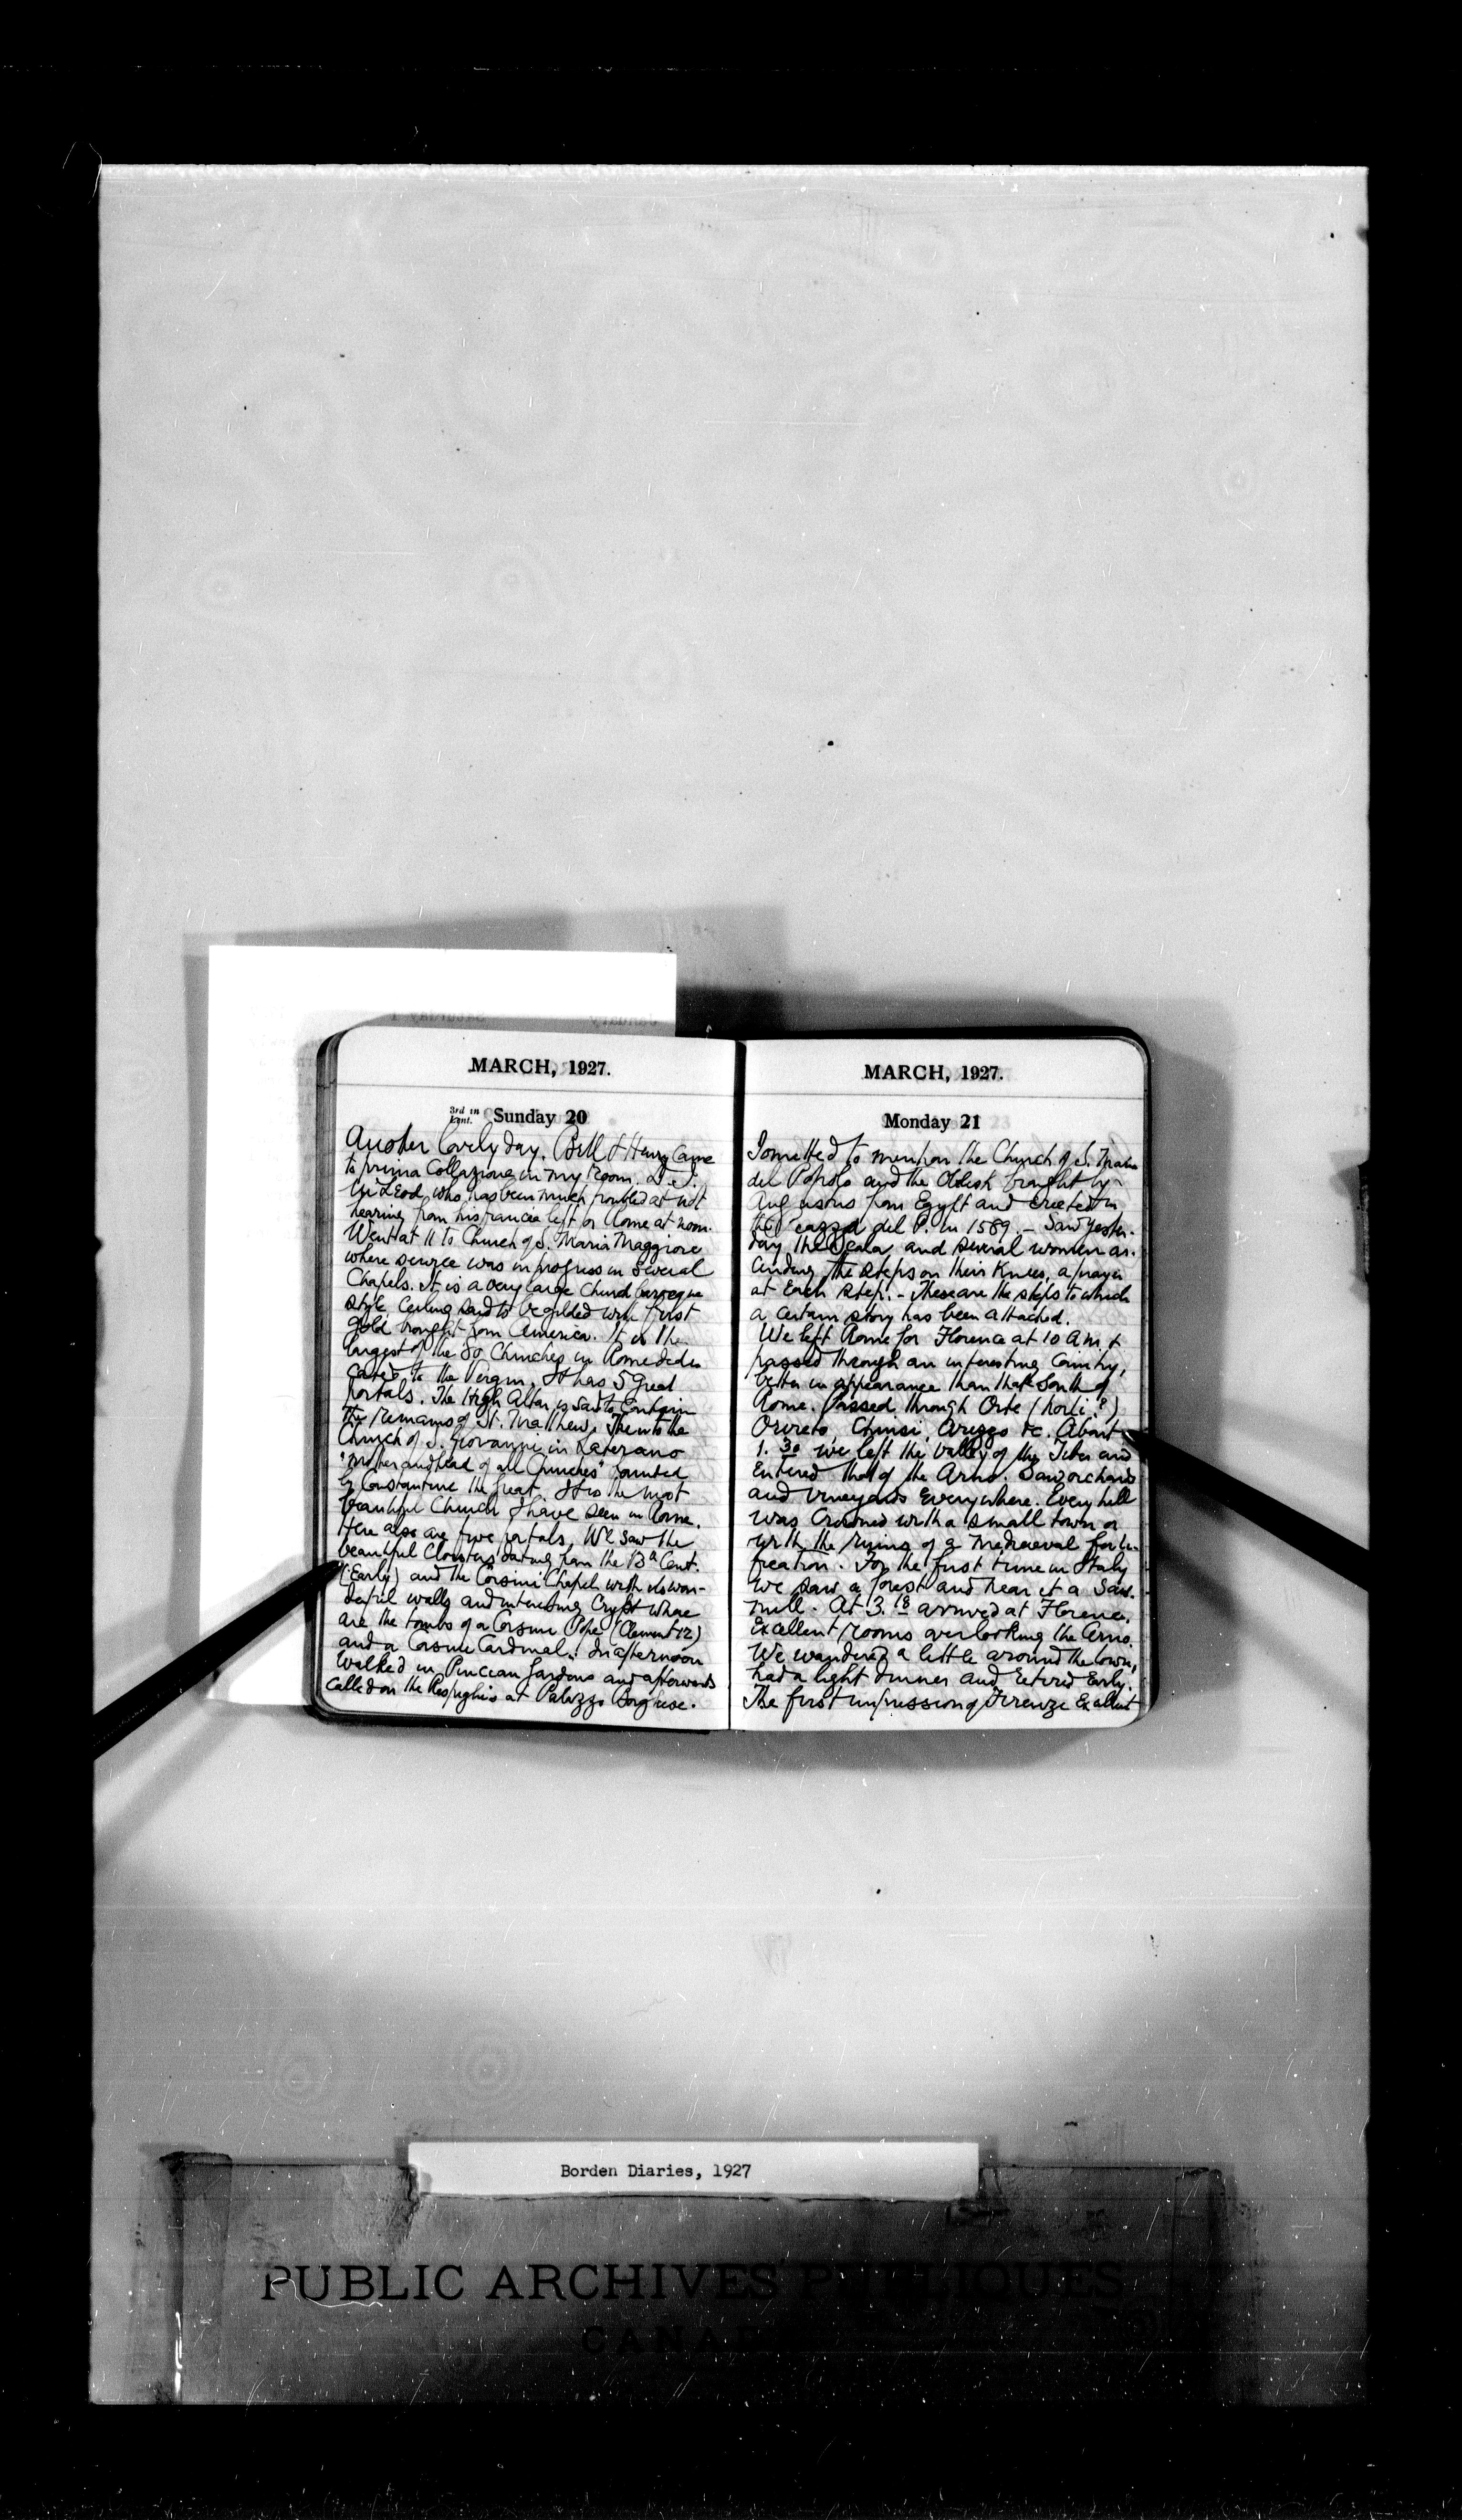 MARCH, 1927.
3rd in Lent. Sunday 20
Another lovely day. Bill & Henry came
to prima Collazione in my room.
McLeod, who has been much troubled at not
hearing from his francia left for Rome at noon.
Went at 11 to Church of S. Maria Maggiore
where service was in progress in several
Chapels. It is a very large Church baroque
style. Ceiling said to be gilded with first
gold brought from America. It is the
largest of the 80 Churches in Rome dedi-
cated to the Virgin. It has 5 great
portals. The High Altar is said to contain
the remains of St. Matthew. Then to the
Church of S. Giovanni in Laterano
"Mother and head of all Churches" founded
by Constantine the Great. It is the most
beautiful Church I have seen in Rome.
Here also are five portals. We saw the
beautiful Cloisters dating from the 13th Cent.
(Early) and the Corsini Chapel with its won-
derful walls and interesting Crypt where
are the tombs of a Corsini Pope (Clement 12)
and a Corsini Cardinal. In afternoon
walked in Pincian Gardens and afterwards
called on the Respighis at Palazzo Borghese.
MARCH, 1927.
Monday 21
I omitted to mention the Church of S. Maria
del Popolo and the Obelisk brought by
Augustus from Egypt and erected in
the Piazza del P. in 1589. - Saw yester-
day the Scala and several women as-
cending the steps on their knees, a prayer
at each step. - These are the steps to which
a certain story has been attached.
We left Rome for Florence at 10 a.m. &
passed through an interesting country,
better in appearance than that South of
Rome. Passed through Orte (Horti?)
Orvieto, Chiusi, Arezzo &c. About
1.30 we left the valley of the Tiber and
entered that of the Arno. Saw orchards
and vineyards everywhere. Every hill
was crowned with a small town or
with the ruins of a Mediaeval forti-
fication. For the first time in Italy
we saw a forest and near it a saw-
mill. At 3.18 arrived at Florence.
Excellent rooms overlooking the Arno.
We wandered a little around the town,
had a light dinner and retired early.
The first impression of Firenze Excellent
Borden Diaries, 1927
PUBLIC ARCHIVES PUBLIQUES
CANADA